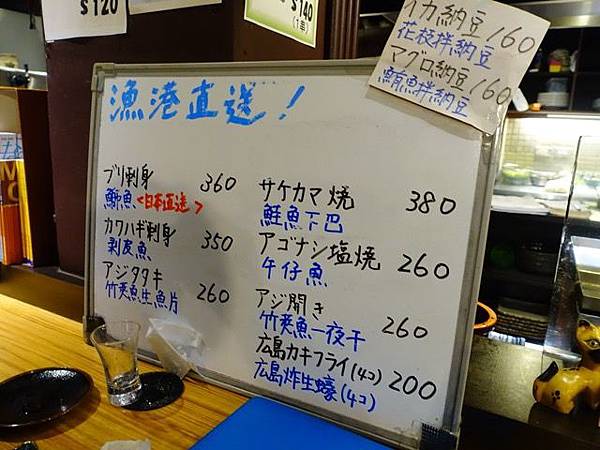 $120
$140
(1串)
イカ納豆 160
花枝拌納豆
マグロ納豆 160
鮪魚拌納豆
漁港直送!
ブリ刺身 360
鰤魚<日本直送>
カワハギ刺身 350
剥皮魚
アジタタキ 260
竹莢魚生魚片
サケカマ焼 380
鮭魚下巴
アゴナシ塩焼 260
午仔魚
アジ開き 260
竹莢魚一夜干
広島カキフライ(4コ) 200
広島炸生蠔(4コ)